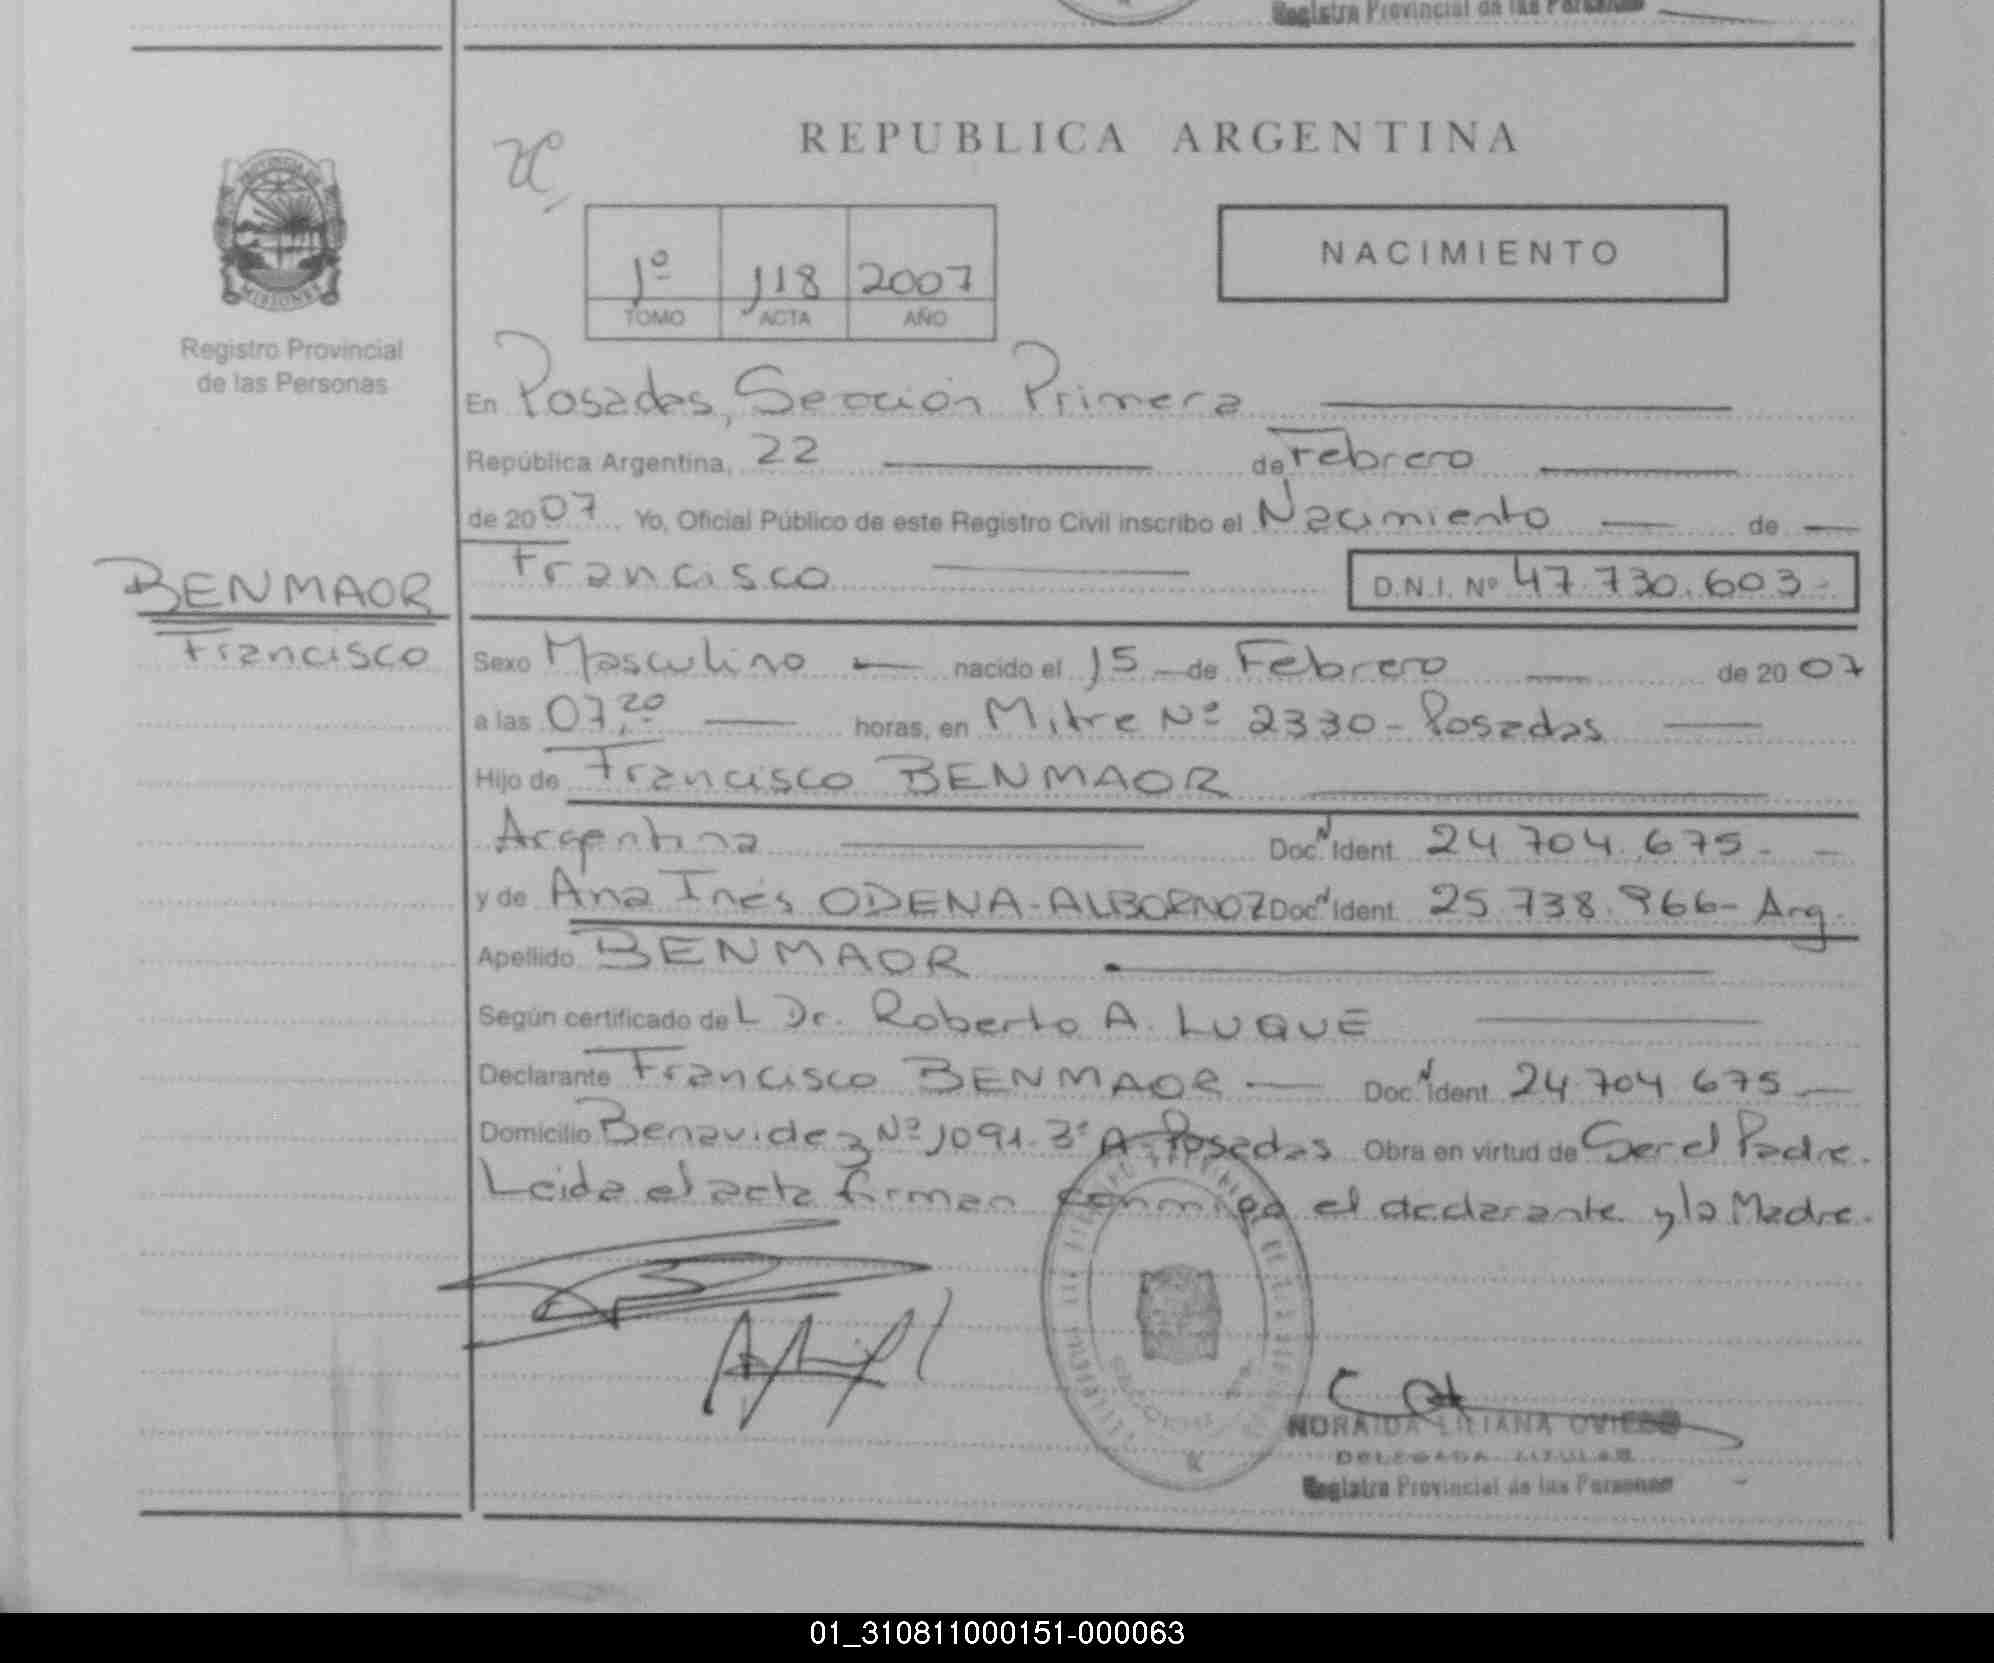 Registro Provincial de las Personas
REPUBLICA ARGENTINA
PROVINCIA DE
MISIONES
Registro Provincial
de las Personas
1º 118 2007
TOMO ACTA AÑO
NACIMIENTO
En Posadas, Sección Primera
República Argentina, 22 de Febrero
de 2007. Yo, Oficial Público de este Registro Civil inscribo el Nacimiento de
Francisco D.N.I. Nº 47.730.603-
BENMAOR
Francisco
Sexo Masculino nacido el 15 de Febrero de 2007
a las 07,20 horas, en Mitre Nº 2330 - Posadas
Hijo de Francisco BENMAOR
Argentina Doc. Ident. 24 704.675-
y de Ana Inés ODENA-ALBORNOZ Doc. Ident. 25.738.966- Arg.
Apellido BENMAOR
Según certificado del Dr. Roberto A. LUQUE
Declarante Francisco BENMAOR Doc. Ident. 24 704 675
Domicilio Benavidez Nº 1091. 3º A-Posadas Obra en virtud de Ser el Padre.
Leida el acta firman conmigo el declarante y la Madre.
NORAIDA LILIANA OVIEDO
DELEGADA TITULAR
Registro Provincial de las Personas
01_310811000151-000063